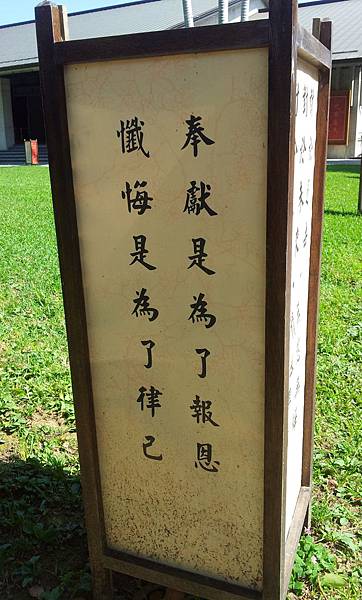 奉獻是為了報恩
懺悔是為了律己